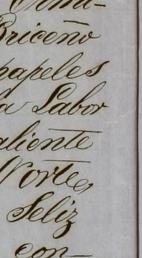 Briceño
papeles
la Labor
aliente
Norte,
Feliz
con-